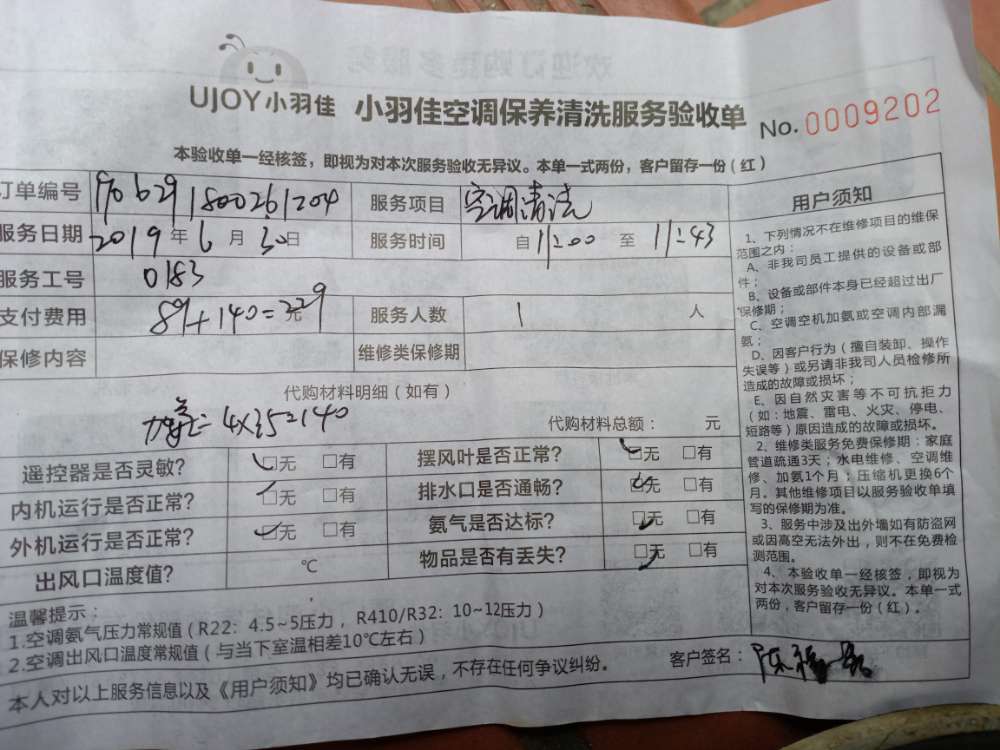 UJOY小羽佳 小羽佳空调保养清洗服务验收单 No.0009202
本验收单一经核签，即视为对本次服务验收无异议。本单一式两份，客户留存一份（红）
订单编号 1906291800261204 服务项目 空调清洁
服务日期 2019年6月30日 服务时间 自11:00至11:43
服务工号 0183
支付费用 89+140=229元 服务人数 1人
保修内容 维修类保修期
代购材料明细（如有）
4×35=140 代购材料总额： 元
遥控器是否灵敏？ □无 □有 摆风叶是否正常？ □无 □有
内机运行是否正常？ □无 □有 排水口是否通畅？ □无 □有
外机运行是否正常？ □无 □有 氨气是否达标？ □无 □有
出风口温度值？ ℃ 物品是否有丢失？ □无 □有
温馨提示：
1.空调氨气压力常规值（R22：4.5~5压力，R410/R32：10~12压力）
2.空调出风口温度常规值（与当下室温相差10℃左右）
本人对以上服务信息以及《用户须知》均已确认无误，不存在任何争议纠纷。
客户签名：
用户须知
1、下列情况不在维修项目的维保
范围之内：
A、非我司员工提供的设备或部
件；
B、设备或部件本身已经超过出厂
保修期；
C、空调空机加氨或空调内部漏
氨；
D、因客户行为（擅自装卸、操作
失误等）或另请非我司人员检修所
造成的故障或损坏；
E、因自然灾害等不可抗拒力
（如：地震、雷电、火灾、停电、
短路等）原因造成的故障或损坏。
2、维修类服务免费保修期：家庭
管道疏通3天；水电维修、空调维
修、加氨1个月；压缩机更换6个
月。其他维修项目以服务验收单填
写的保修期为准。
3、服务中涉及出外墙如有防盗网
或因高空无法外出，则不在免费检
测范围。
4、本验收单一经核签，即视为
对本次服务验收无异议。本单一式
两份，客户留存一份（红）。